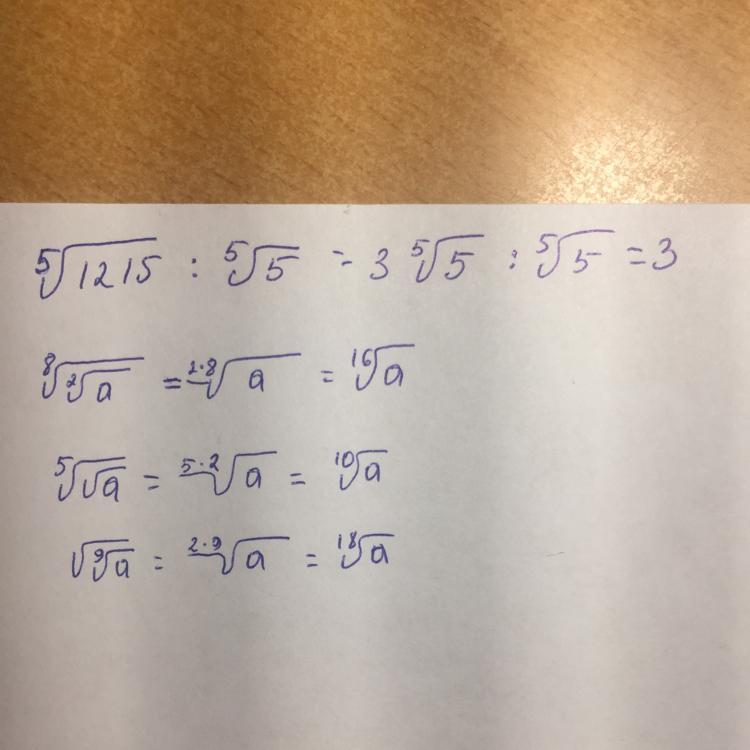 ⁵√1215 : ⁵√5 = 3 ⁵√5 : ⁵√5 = 3
⁸√(²√a) = ²·⁸√a = ¹⁶√a
⁵√(√a) = ⁵·²√a = ¹⁰√a
√(⁹√a) = ²·⁹√a = ¹⁸√a